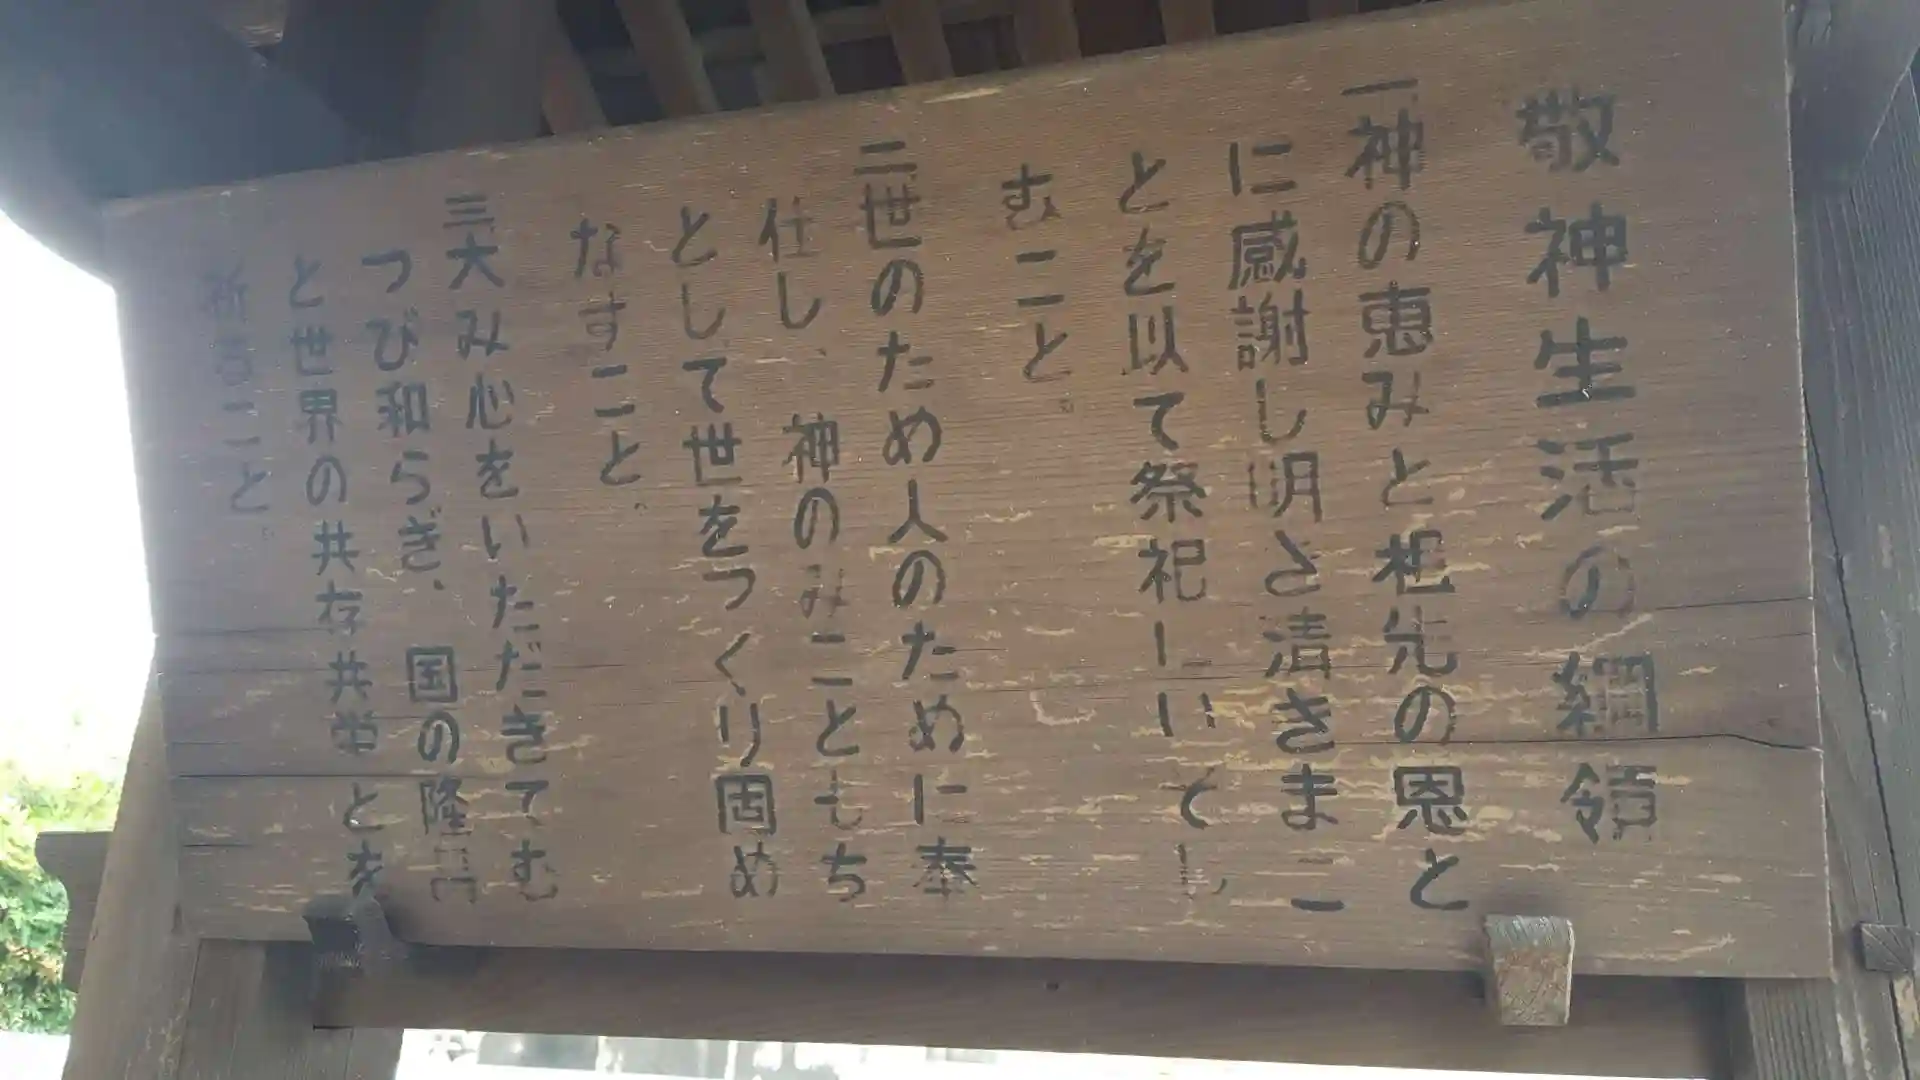 敬神生活の綱領
一神の恵みと祖先の恩と
に感謝し明き清きまこ
とを以て祭祀にいそし
むこと。
二世のため人のために奉
仕し、神のみこともち
として世をつくり固め
なすこと。
三大み心をいただきてむ
つび和らぎ、国の隆昌
と世界の共存共栄とを
祈ること。